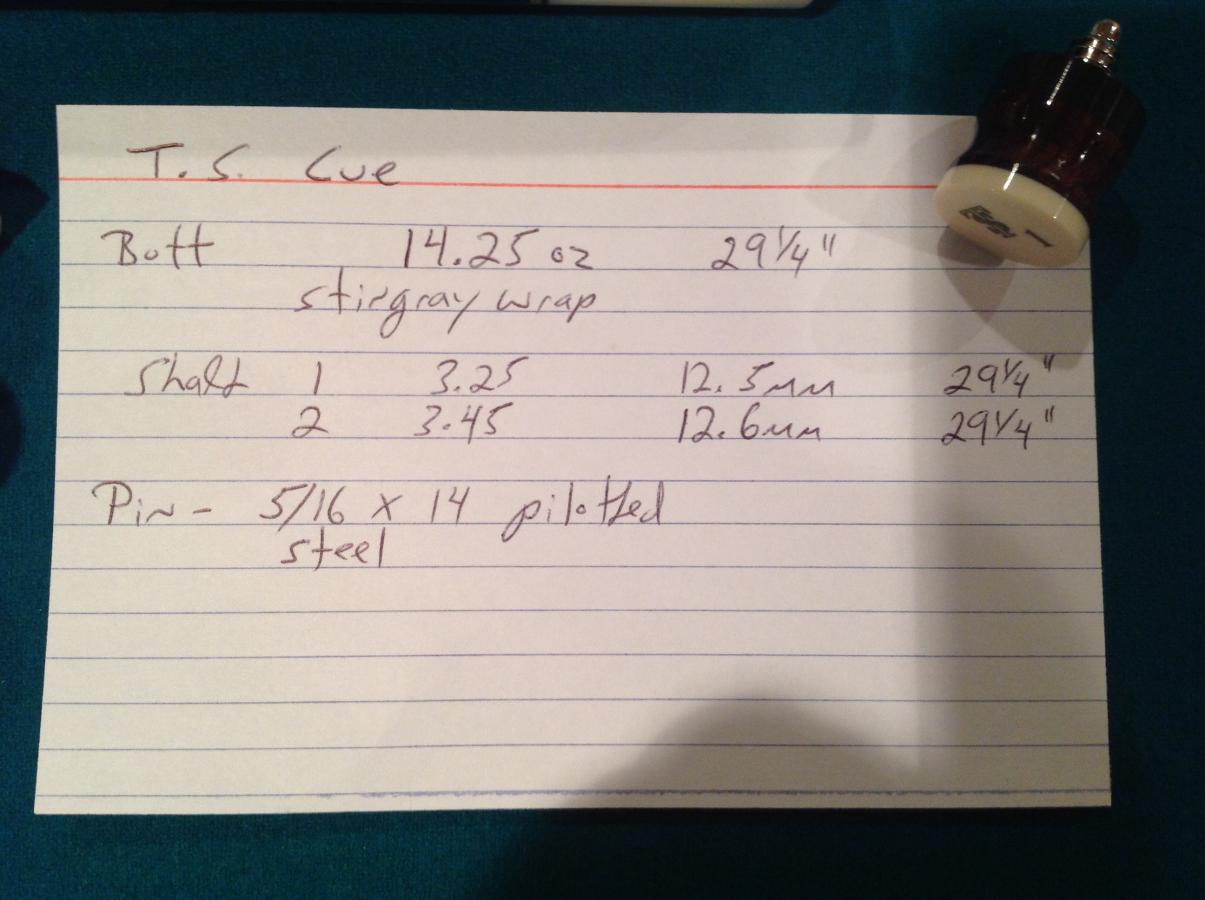 T.S. Cue
Butt 14.25 oz 29 1/4"
stingray wrap
Shaft 1 3.25 12.5mm 29 1/4"
2 3.45 12.6mm 29 1/4"
Pin - 5/16 x 14 pilotted
steel